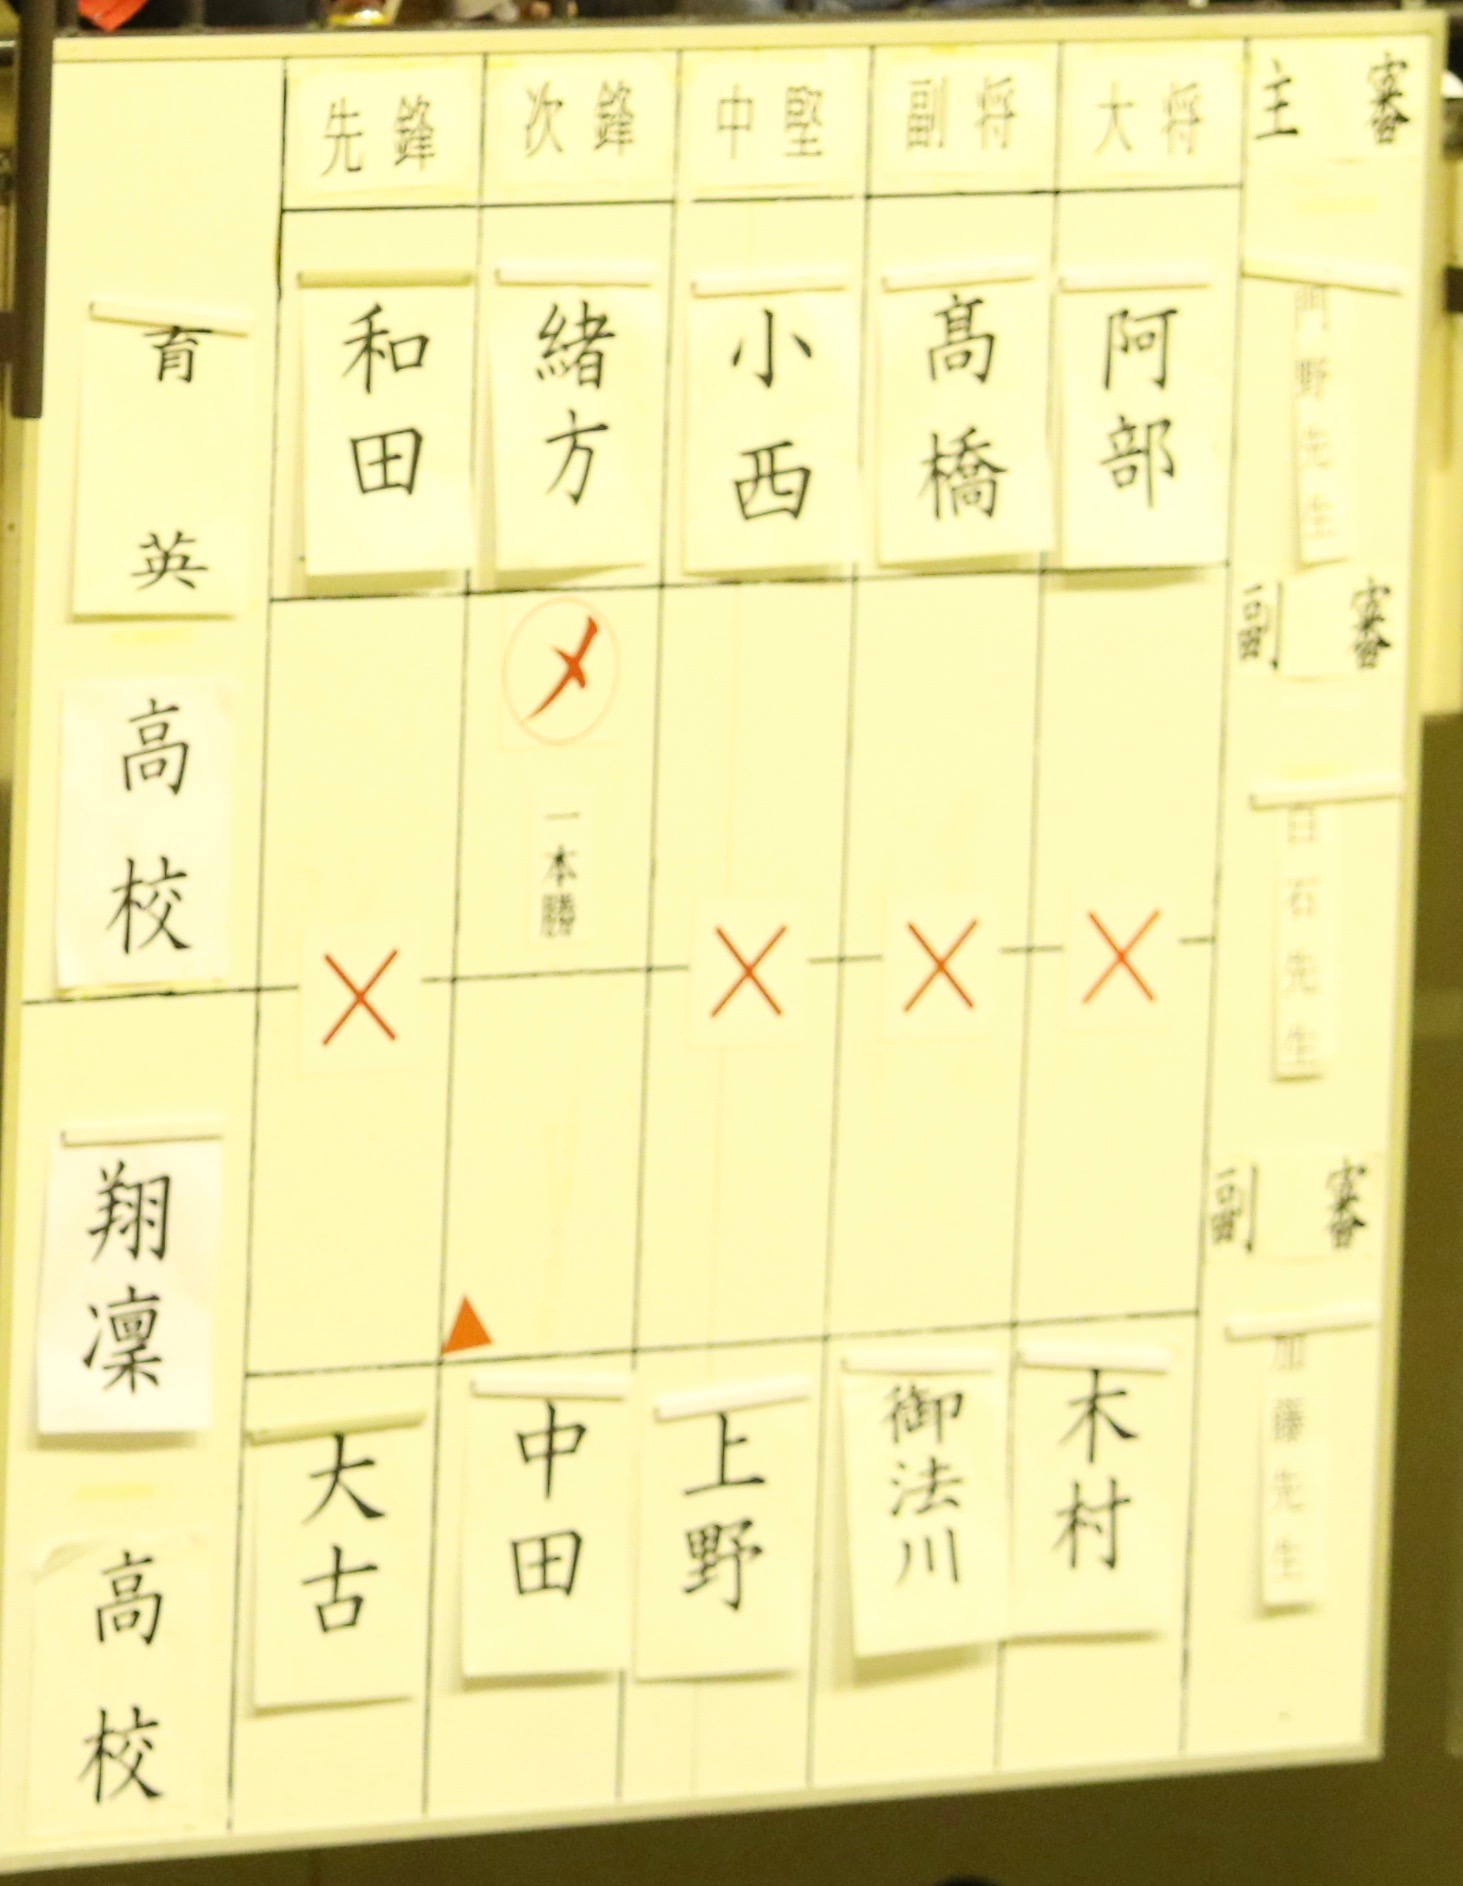 先鋒 次鋒 中堅 副将 大将 主審
育英高校
和田 緒方 小西 高橋 阿部
門野先生
副審
メ
一本勝
白石先生
× × × ×
翔凜高校
副審
大古 中田 上野 御法川 木村
加藤先生